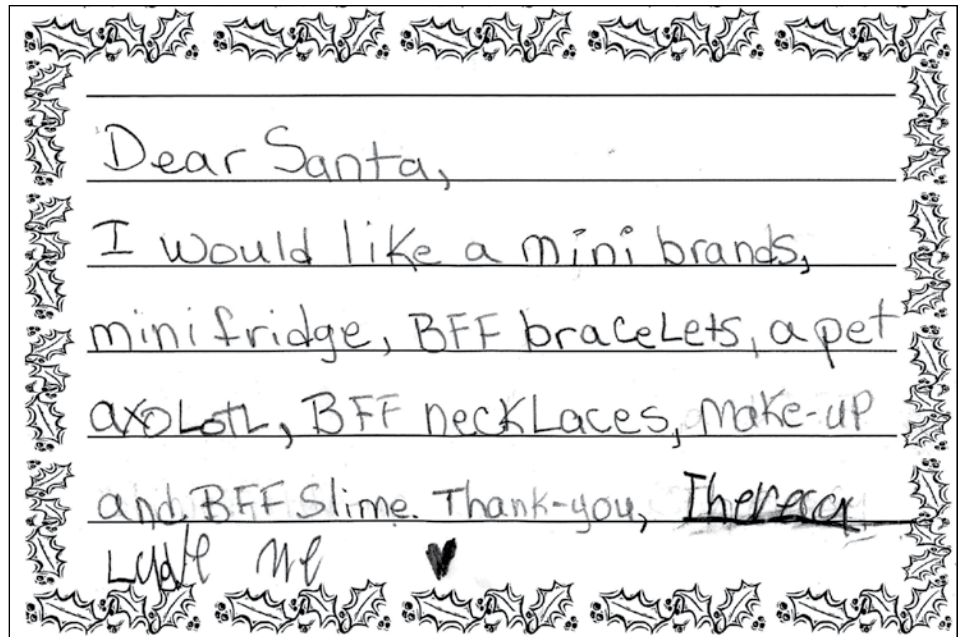 Dear Santa,
I would like a mini brands,
mini fridge, BFF bracelets, a pet
axolotl, BFF necklaces, make-up
and BFF Slime. Thank-you,